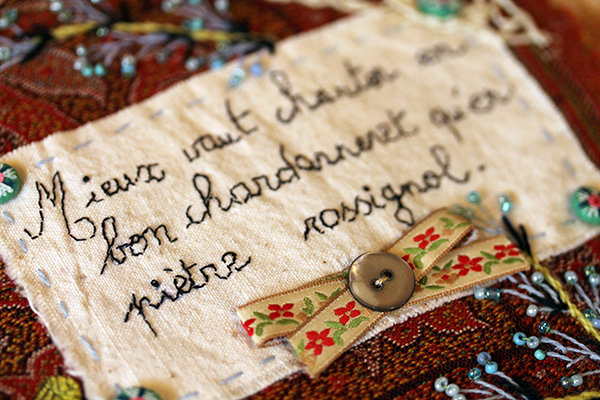 Mieux vaut chanter en
bon chardonneret qu'en
piètre rossignol.